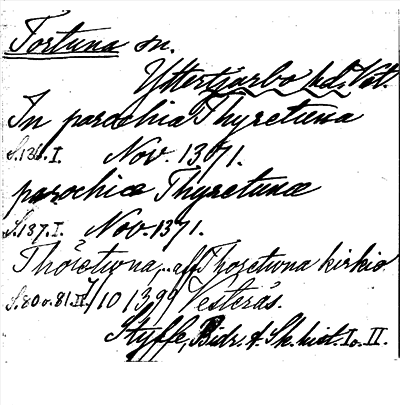 Tortuna sn.
Yttertjurbo hd, Vst.
In parochia Thyretuna
S. 136. I. Nov. 1371.
parochiæ Thyretunæ
S. 137. I. Nov. 1371.
Thoretwna, .. aff Thoretwna kirkio
S. 80 o. 81. II. 7/10 1399 Vesterås.
Styffe, Bidr. t. Sk. hist. I o. II.